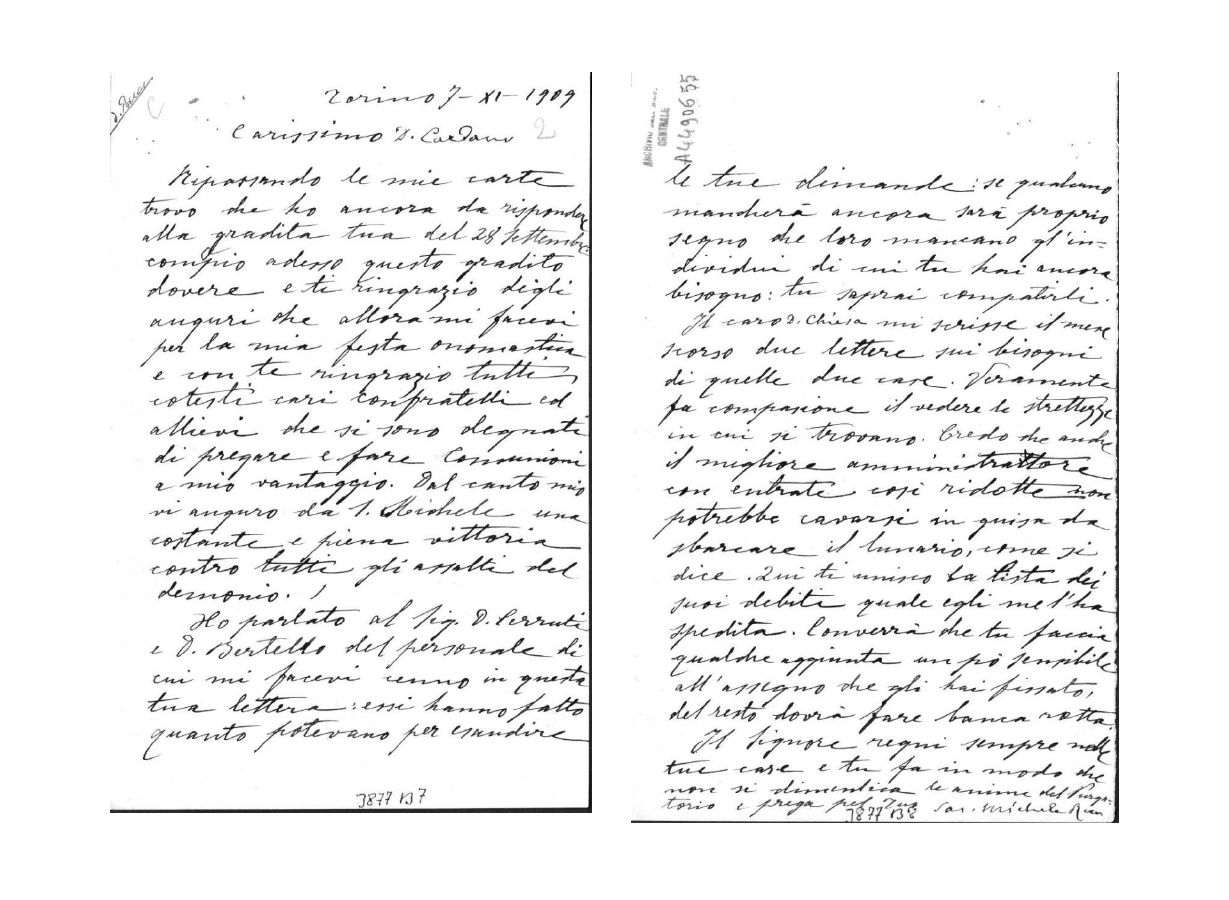 Torino 7-XI-1909
Carissimo D. Cardano 2
Ripassando le mie carte
trovo che ho ancora da rispondere
alla gradita tua del 28 Settembre:
compio adesso questo gradito
dovere e ti ringrazio degli
auguri che allora mi facevi
per la mia festa onomastica
e con te ringrazio tutti
cotesti cari confratelli ed
allievi che si sono degnati
di pregare e fare Comunioni
a mio vantaggio. Dal canto mio
vi auguro da S. Michele una
costante e piena vittoria
contro tutti gli assalti del
demonio.
Ho parlato al Sig. D. Cerruti
e D. Bertello del personale di
cui mi facevi cenno in questa
tua lettera: essi hanno fatto
quanto potevano per esaudire
J877 B7
ARCHIVIO
CENTRALE
A4490655
le tue dimande: se qualcuno
mancherà ancora sarà proprio
segno che loro mancano gl'in=
dividui di cui tu hai ancora
bisogno: tu saprai compatirli.
Il caro D. Chiesa mi scrisse il mese
scorso due lettere sui bisogni
di quelle due case. Veramente
fa compasione il vedere le strettezze
in cui si trovano. Credo che anche
il migliore amministrattore
con entrate così ridotte non
potrebbe cavarsi in guisa da
sbarcare il lunario, come si
dice. Qui ti unisco la lista dei
suoi debiti quale egli me l'ha
spedita. Converrà che tu faccia
qualche aggiunta un pò sensibile
all'assegno che gli hai fissato,
del resto dovrà fare banca rotta.
Il Signore regni sempre nelle
tue case e tu fa in modo che
non si dimentica le anime del Purga=
torio e prega pel Tuo Sac. Michele Rua
J877 B8